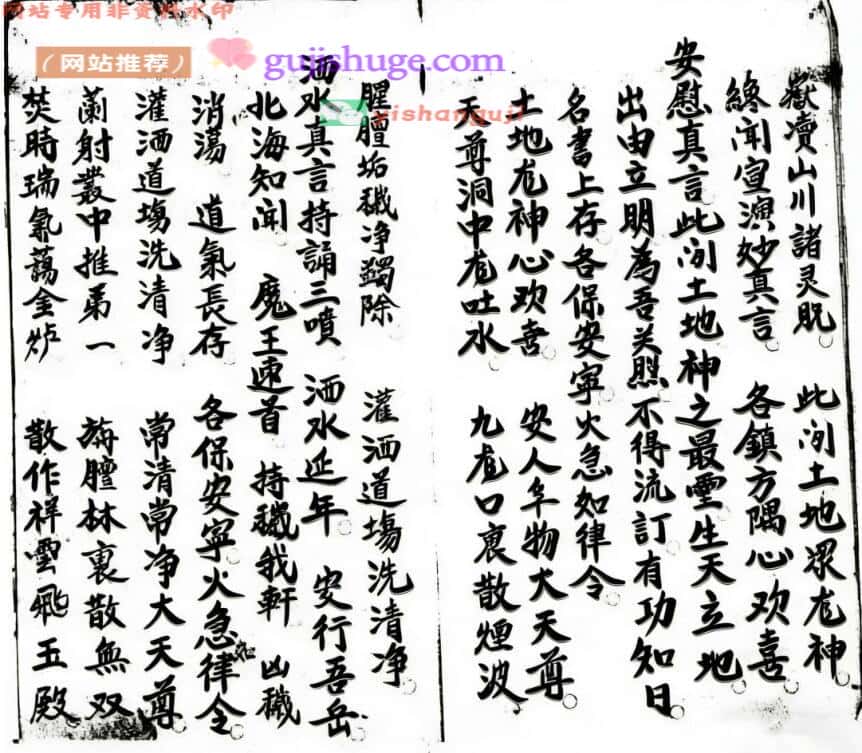 网站专用非资料水印
（网站推荐）
gujishuge.com
yishanguji
嶽瀆山川諸灵貺 此间土地眾尨神
終闻宣演妙真言 各鎮方隅心欢喜
安慰真言此间土地神之最靈生天立地
出由立明為吾关照不得流訂有功知日
名書上存各保安寧火急如律令
土地尨神心欢喜 安人阜物大天尊
天尊洞中尨吐水 九尨口裏散煙波
腥膻垢穢净蠲除 灌洒道場洗清净
洒水真言持誦三噴 洒水延年 安行吾岳
北海知聞 魔王速首 持穢我軒 凶穢
消蕩 道氣長存 各保安寧火急如律令
灌洒道場洗清净 常清常净大天尊
蘭射叢中推第一 旃膻林裏散無双
焚時瑞氣藹金炉 散作祥雲飛玉殿